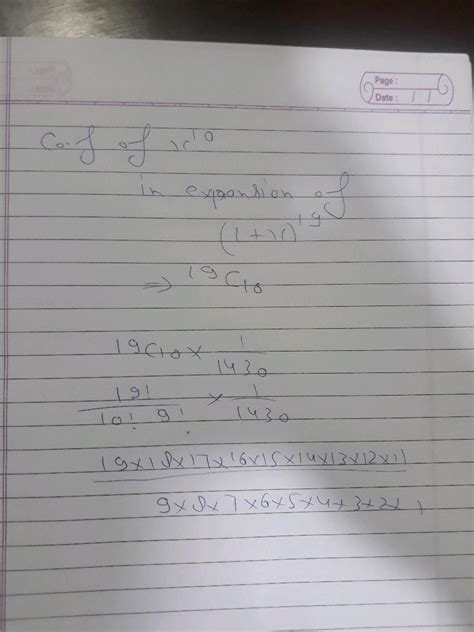 Page :
Date : / /
Co.f of x¹⁰
in expansion of
(1+x)¹⁹
⇒ ¹⁹C₁₀
19C₁₀ × 1/1430
19!/10! 9! × 1/1430
19×18×17×16×15×14×13×12×11
9×8×7×6×5×4×3×2×1